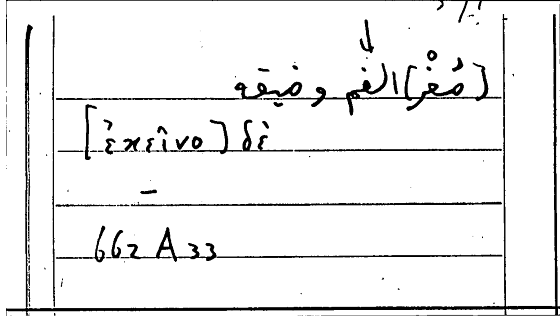 [صُغْر] الفم وضيقه
[ἐκεῖνο] δὲ
–
662 A 33